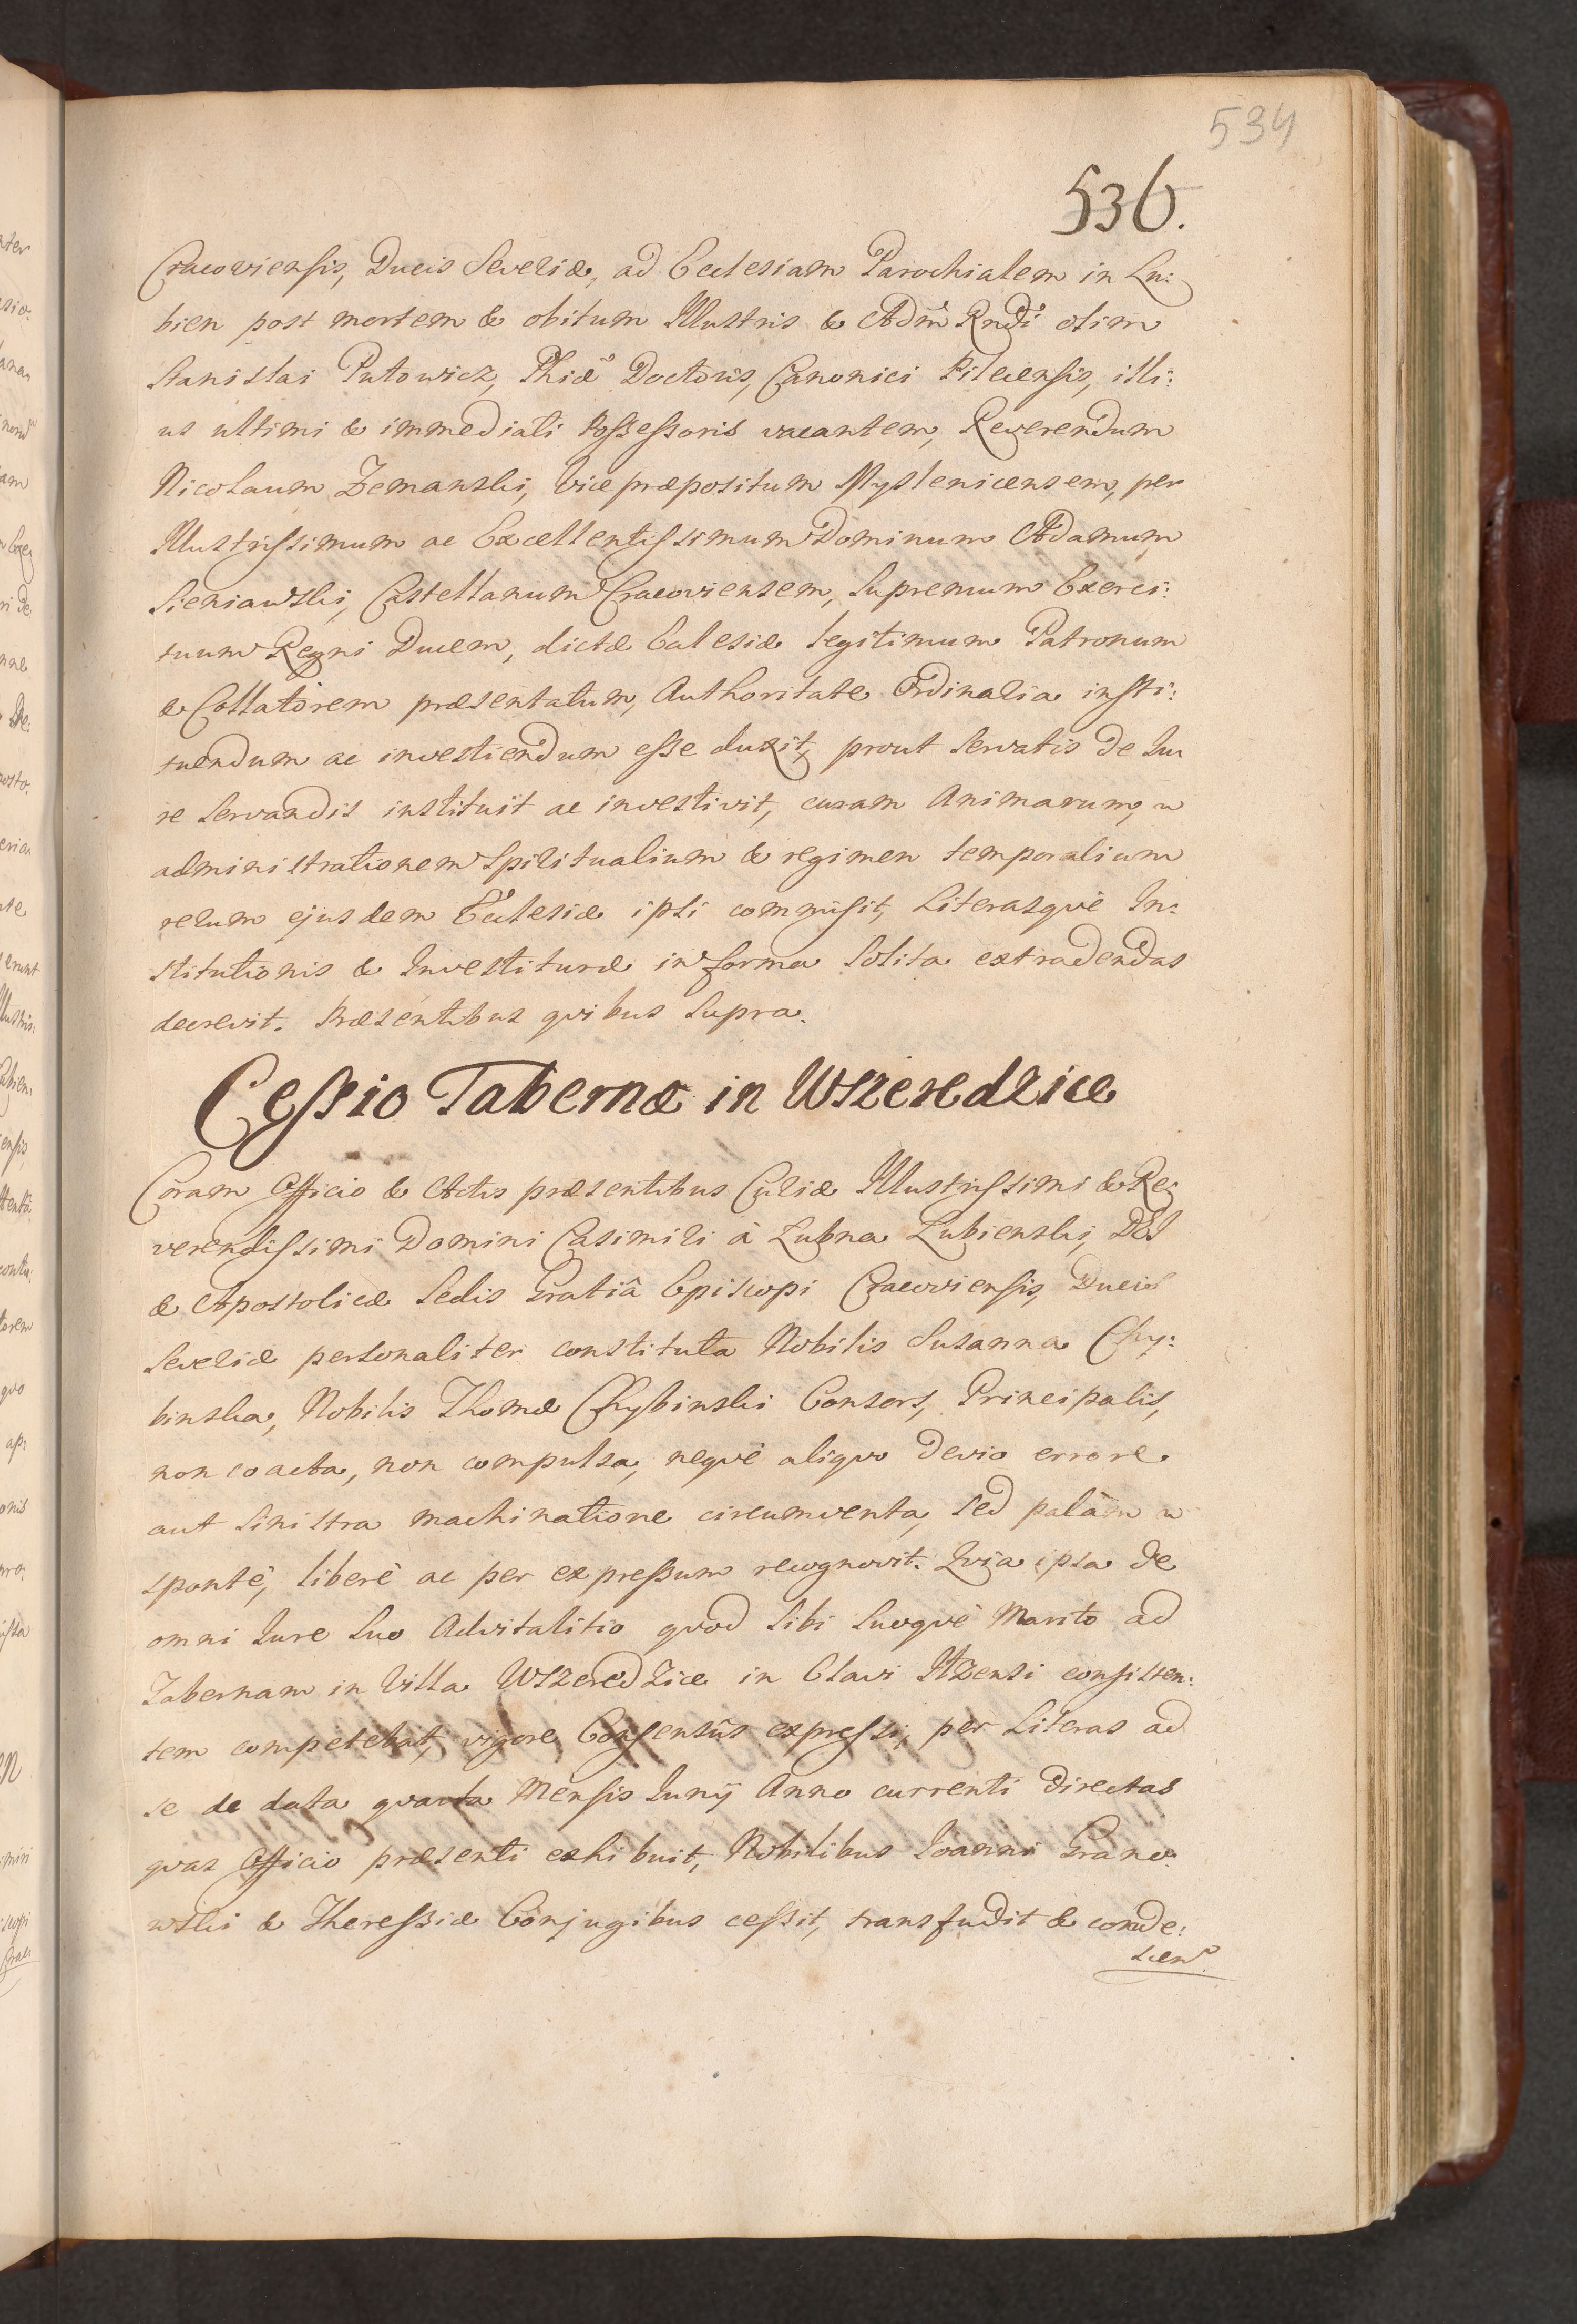 534
536.
Cracoviensis, Ducis Severiæ, ad Ecclesiam Parochialem in Lu:
bien post mortem & obitum Illustris & Adm Rndi olim
Stanislai Putowicz, Phiæ Doctoris, Canonici Pilecensis, illi:
us ultimi & immediati Possessoris vacantem, Reverendum
Nicolaum Zemanski, Vicepræpositum Myslenicensem, per
Illustrissimum ac Excellentissimum Dominum Adamum
Sieniawski, Castellanum Cracoviensem, Supremum Exerci:
tuum Regni Ducem, dictæ Ecclesiæ legitimum Patronum
& Collatorem præsentatum, Authoritate Ordinaria insti:
tuendum ac investiendum esse duxit, prout servatis de Iu
re servandis instituit ac investivit, curam Animarum,
administrationem Spiritualium & regimen temporalium
rerum ejusdem Ecclesiæ ipsi commisit, Literasquè In:
stitutionis & Investituræ in forma solita extradendas
decrevit. Præsentibus quibus supra.
Cessio Tabernæ in Wszeredzice
Coram Officio & Actis præsentibus Curiæ Illustrissimi & Re:
verendissimi Domini Casimiri à Lubna Lubienski, DEI
& Apostolicæ Sedis Gratiâ Episcopi Cracoviensis, Ducis
Severiæ personaliter constituta Nobilis Susanna Chy:
binska, Nobilis Thomæ Chybinski Consors, Principalis,
non coacta, non compulsa, nequè aliquo devio errore
aut sinistra machinatione circumventa, sed palàm
spontè, liberè ac per expressum recognovit. Quia ipsa de
omni Iure suo Advitalitio quod sibi suoquè Marito ad
Tabernam in Villa Wszeredzice in Clavi Ilzensi consisten:
tem competebat, vigore Consensûs expressi, per Literas ad
se de data quarta Mensis Iunij Anno currenti directas
quas Officio præsenti exhibuit, Nobilibus Ioanni Grano:
wski & Theressiæ Conjugibus cessit, transfudit & conde:
scen